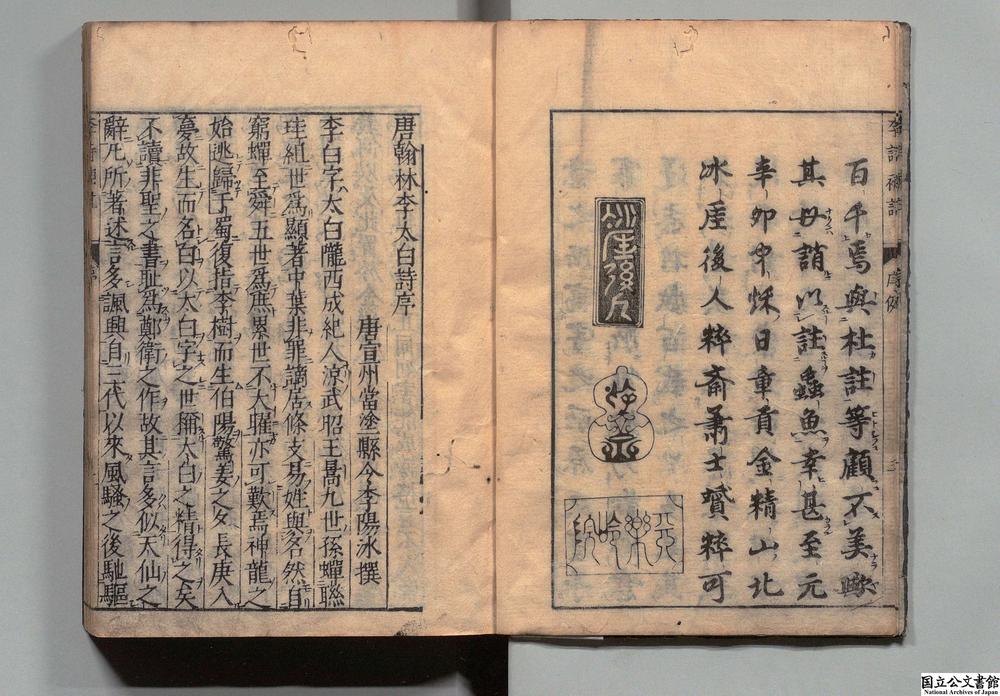 李詩補註 序例
百千焉與杜註等顧不美歟
其毋誚以註蟲魚幸甚至元
辛卯中秌日章貢金精山北
冰厓後人粹齋蕭士贇粹可
冰厓後人
唐翰林李太白詩序
唐宣州當塗縣令李陽冰撰
李白字太白隴西成紀人涼武昭王暠九世孫蟬聯
珪組世爲顯著中葉非罪謫居條支易姓與名然自
窮蟬至舜五世爲庶累世不大曜亦可歎焉神龍之
始逃歸于蜀復指李樹而生伯陽驚姜之夕長庚入
夢故生而名白以太白字之世稱太白之精得之矣
不讀非聖之書恥爲鄭衛之作故其言多似天仙之
辭凡所著述言多諷興自三代以來風騷之後馳驅
国立公文書館
National Archives of Japan